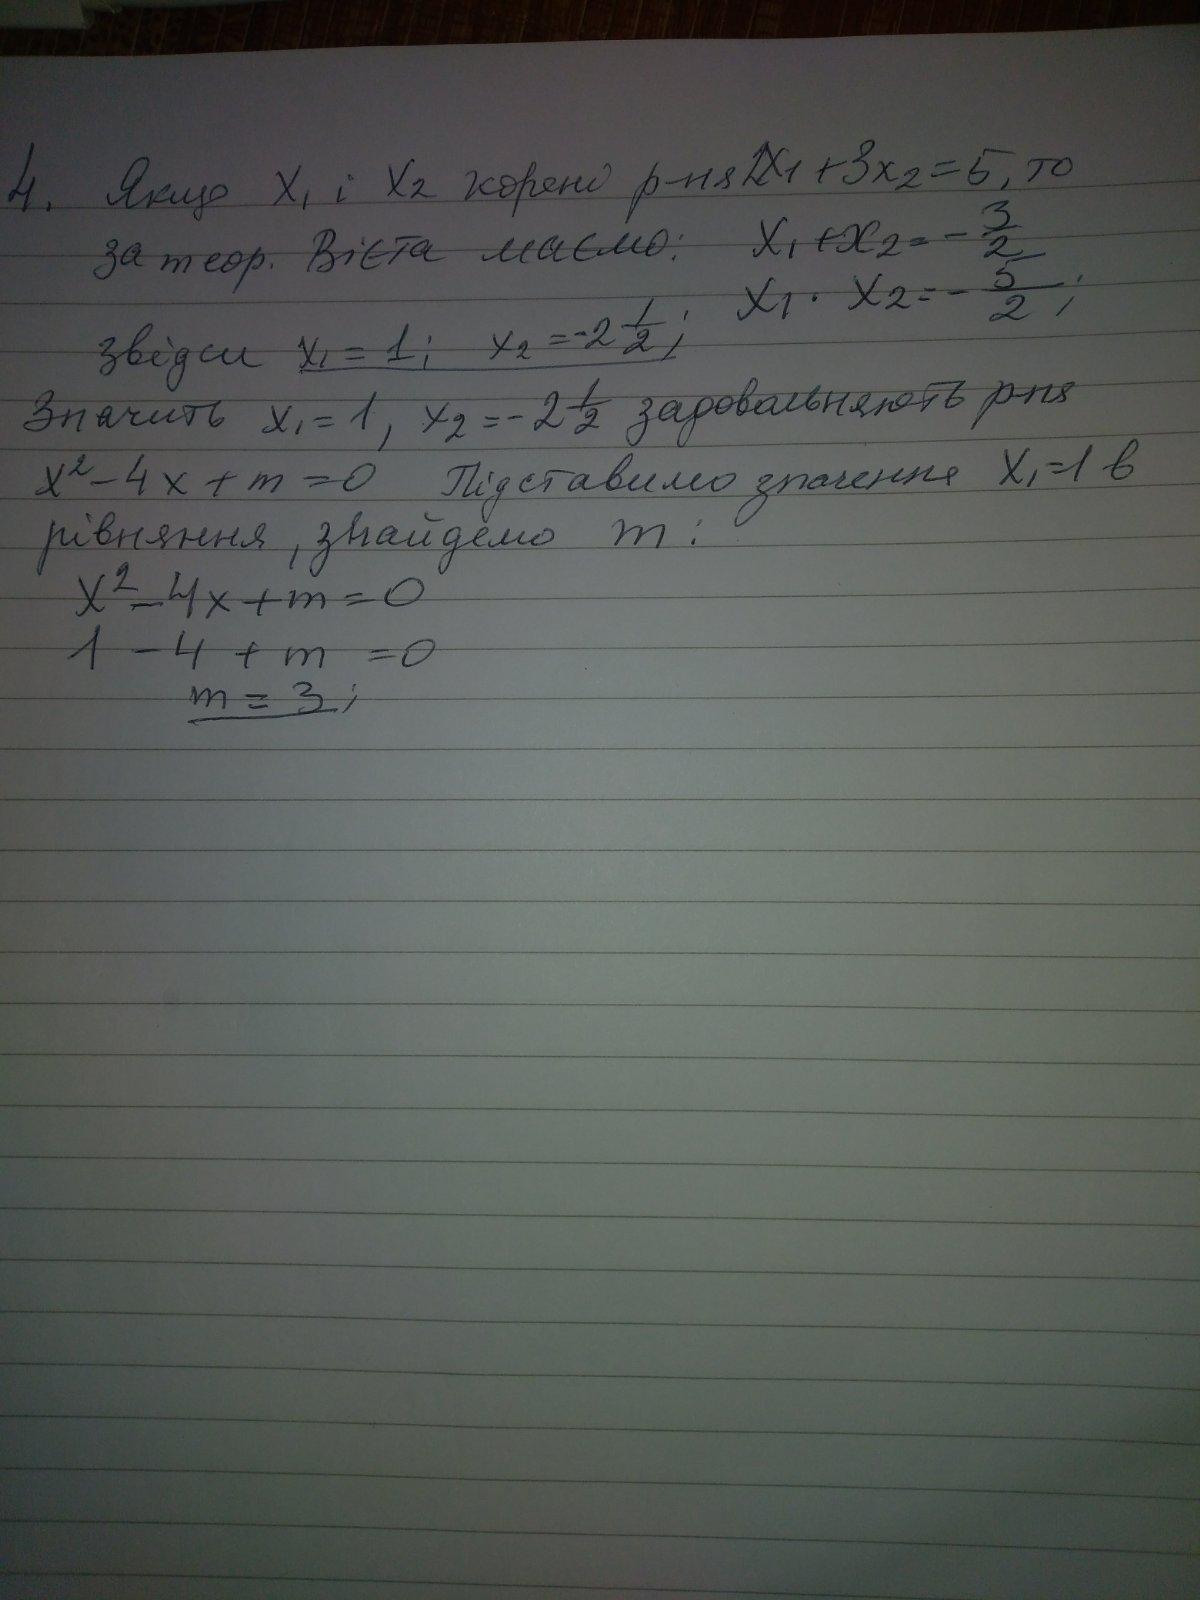 4. Якщо x₁ і x₂ корені р-ня 2x₁ + 3x₂ = 5, то
за теор. Вієта маємо: x₁ + x₂ = - 3/2
x₁ · x₂ = - 5/2;
звідси x₁ = 1; x₂ = -2 1/2;
Значить x₁ = 1, x₂ = -2 1/2 задовольняють р-ня
x² - 4x + m = 0 Підставимо значення x₁ = 1 в
рівняння, знайдемо m:
x² - 4x + m = 0
1 - 4 + m = 0
m = 3;